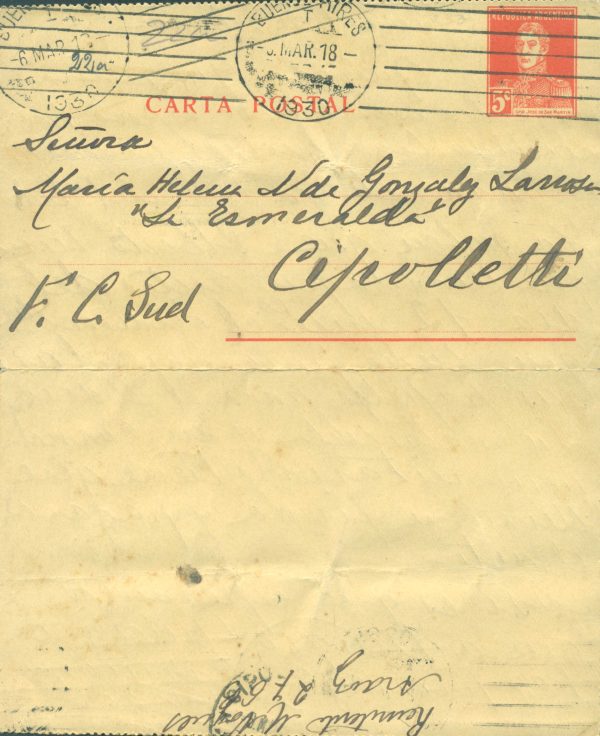 BUENOS AIRES
6 MAR. 18
1930
22 10
BUENOS AIRES
6 MAR. 18
1930
REPUBLICA ARGENTINA
5c
GRAL. JOSE DE SAN MARTIN
CARTA POSTAL
Señora
María Helena N de Gonzalez Larrosa
"La Esmeralda"
Cipolletti
F. C. Sud
Remitente M.
Araoz 2760